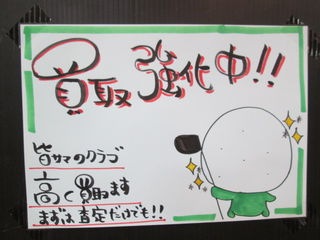 買取強化中!!
皆サマのクラブ
高く買取ます
まずは査定だけでも!!